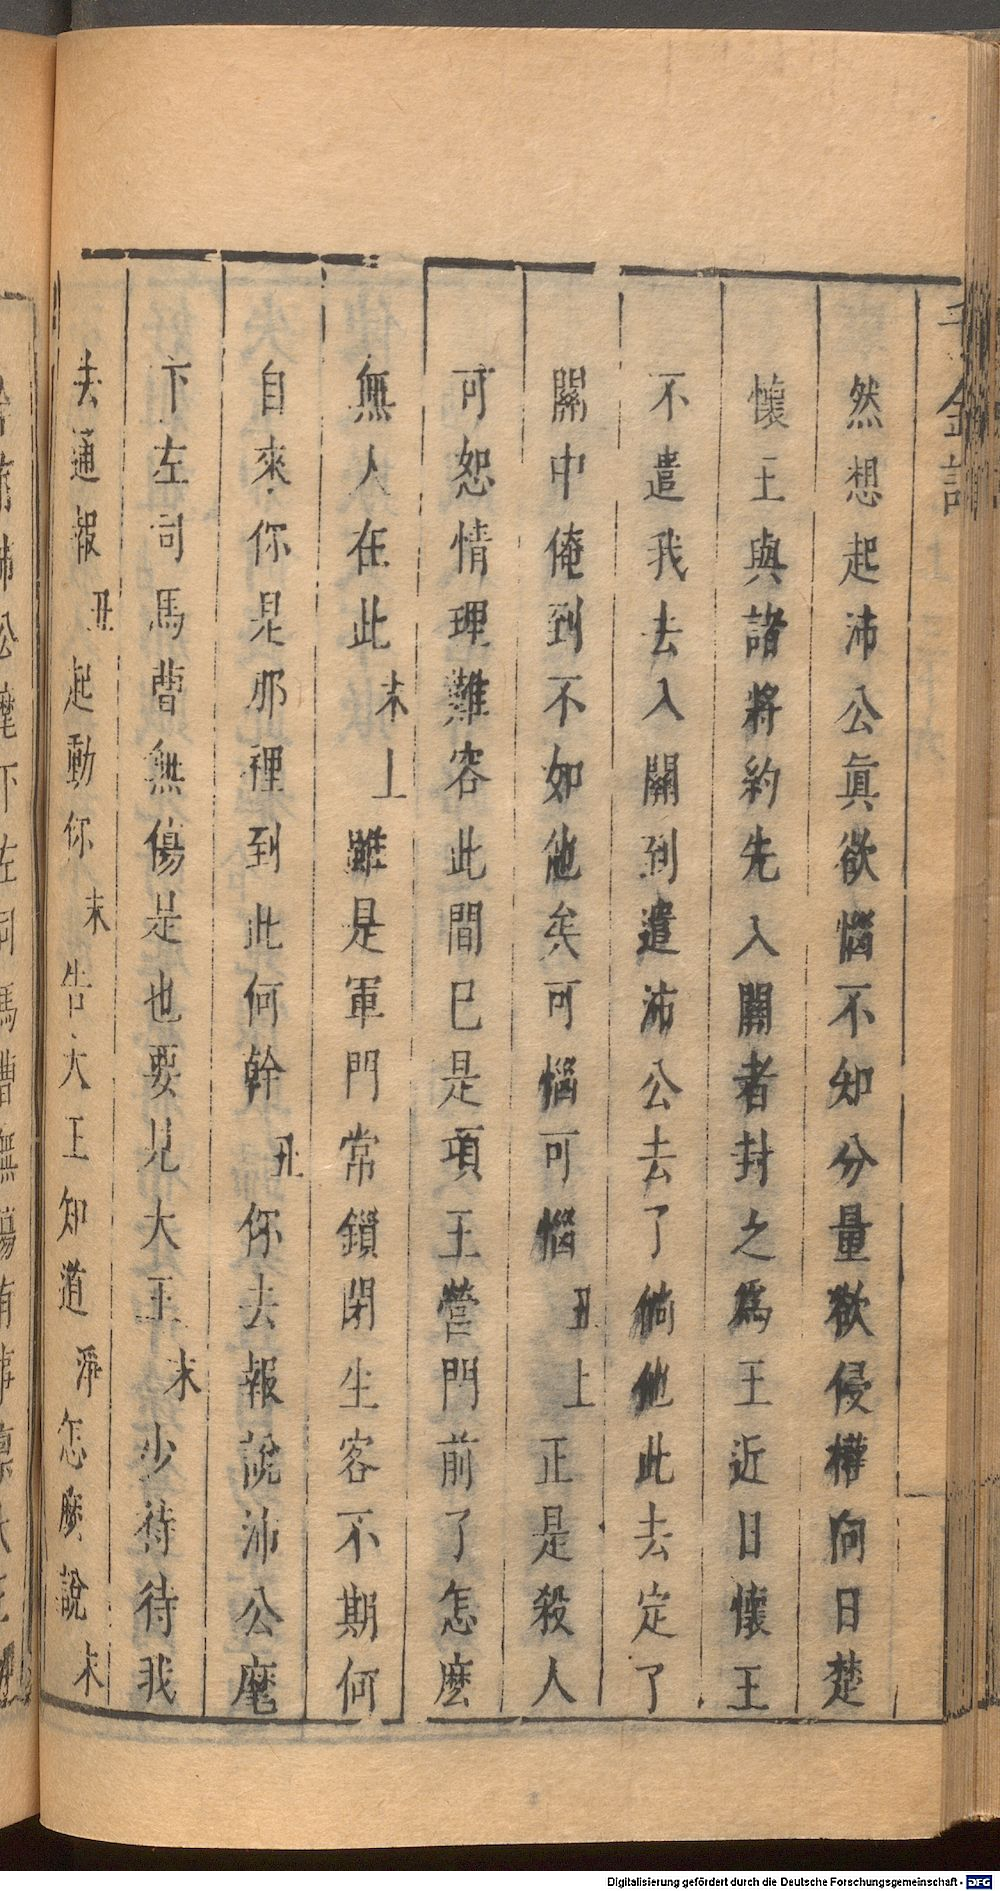 千金記 上
然想起沛公眞欲惱不知分量欲侵權向日楚
懷王與諸將約先入關者封之爲王近日懷王
不遣我去入關到遣沛公去了倘他此去定了
關中俺到不如他矣可惱可惱 丑上 正是殺人
可恕情理難容此間已是項王營門前了怎麽
無人在此 末上 雖是軍門常鎖閉生客不期何
自來你是那裡到此何幹 丑 你去報說沛公麾
下左司馬曹無傷是也要見大王 末 少待待我
去通報 丑 起動你 末 告大王知道 淨 怎麽說 末
Digitalisierung gefördert durch die Deutsche Forschungsgemeinschaft - DFG